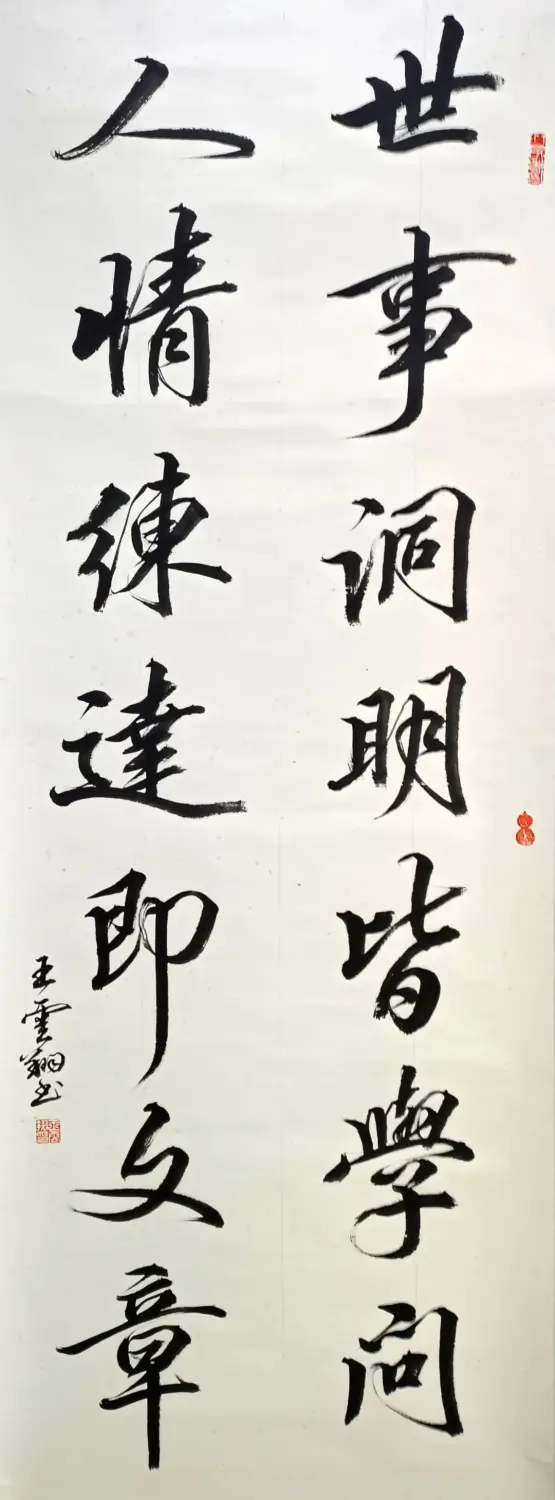 世事洞明皆學問
人情練達即文章
王雲翔书